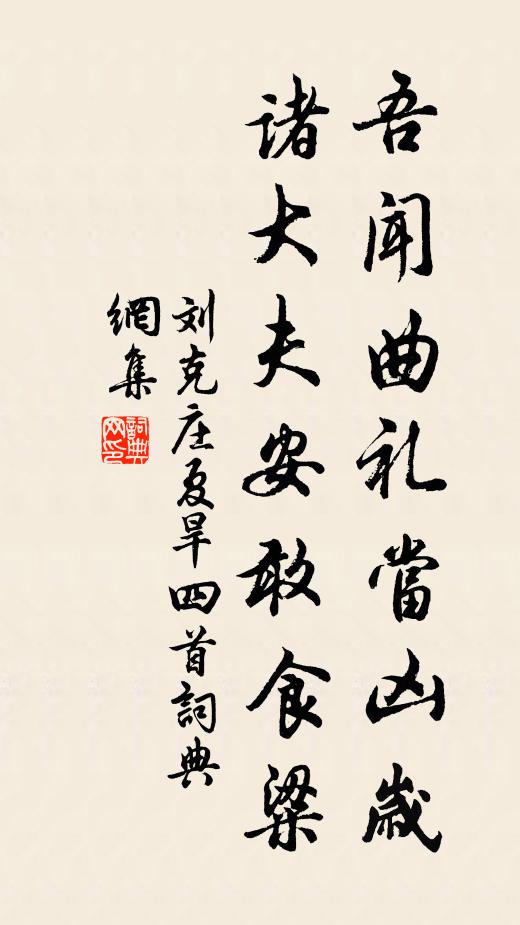 吾闻曲礼當凶歲
诸大夫安敢食粱
刘克庄夏旱四首詞典
網集
詞典網印